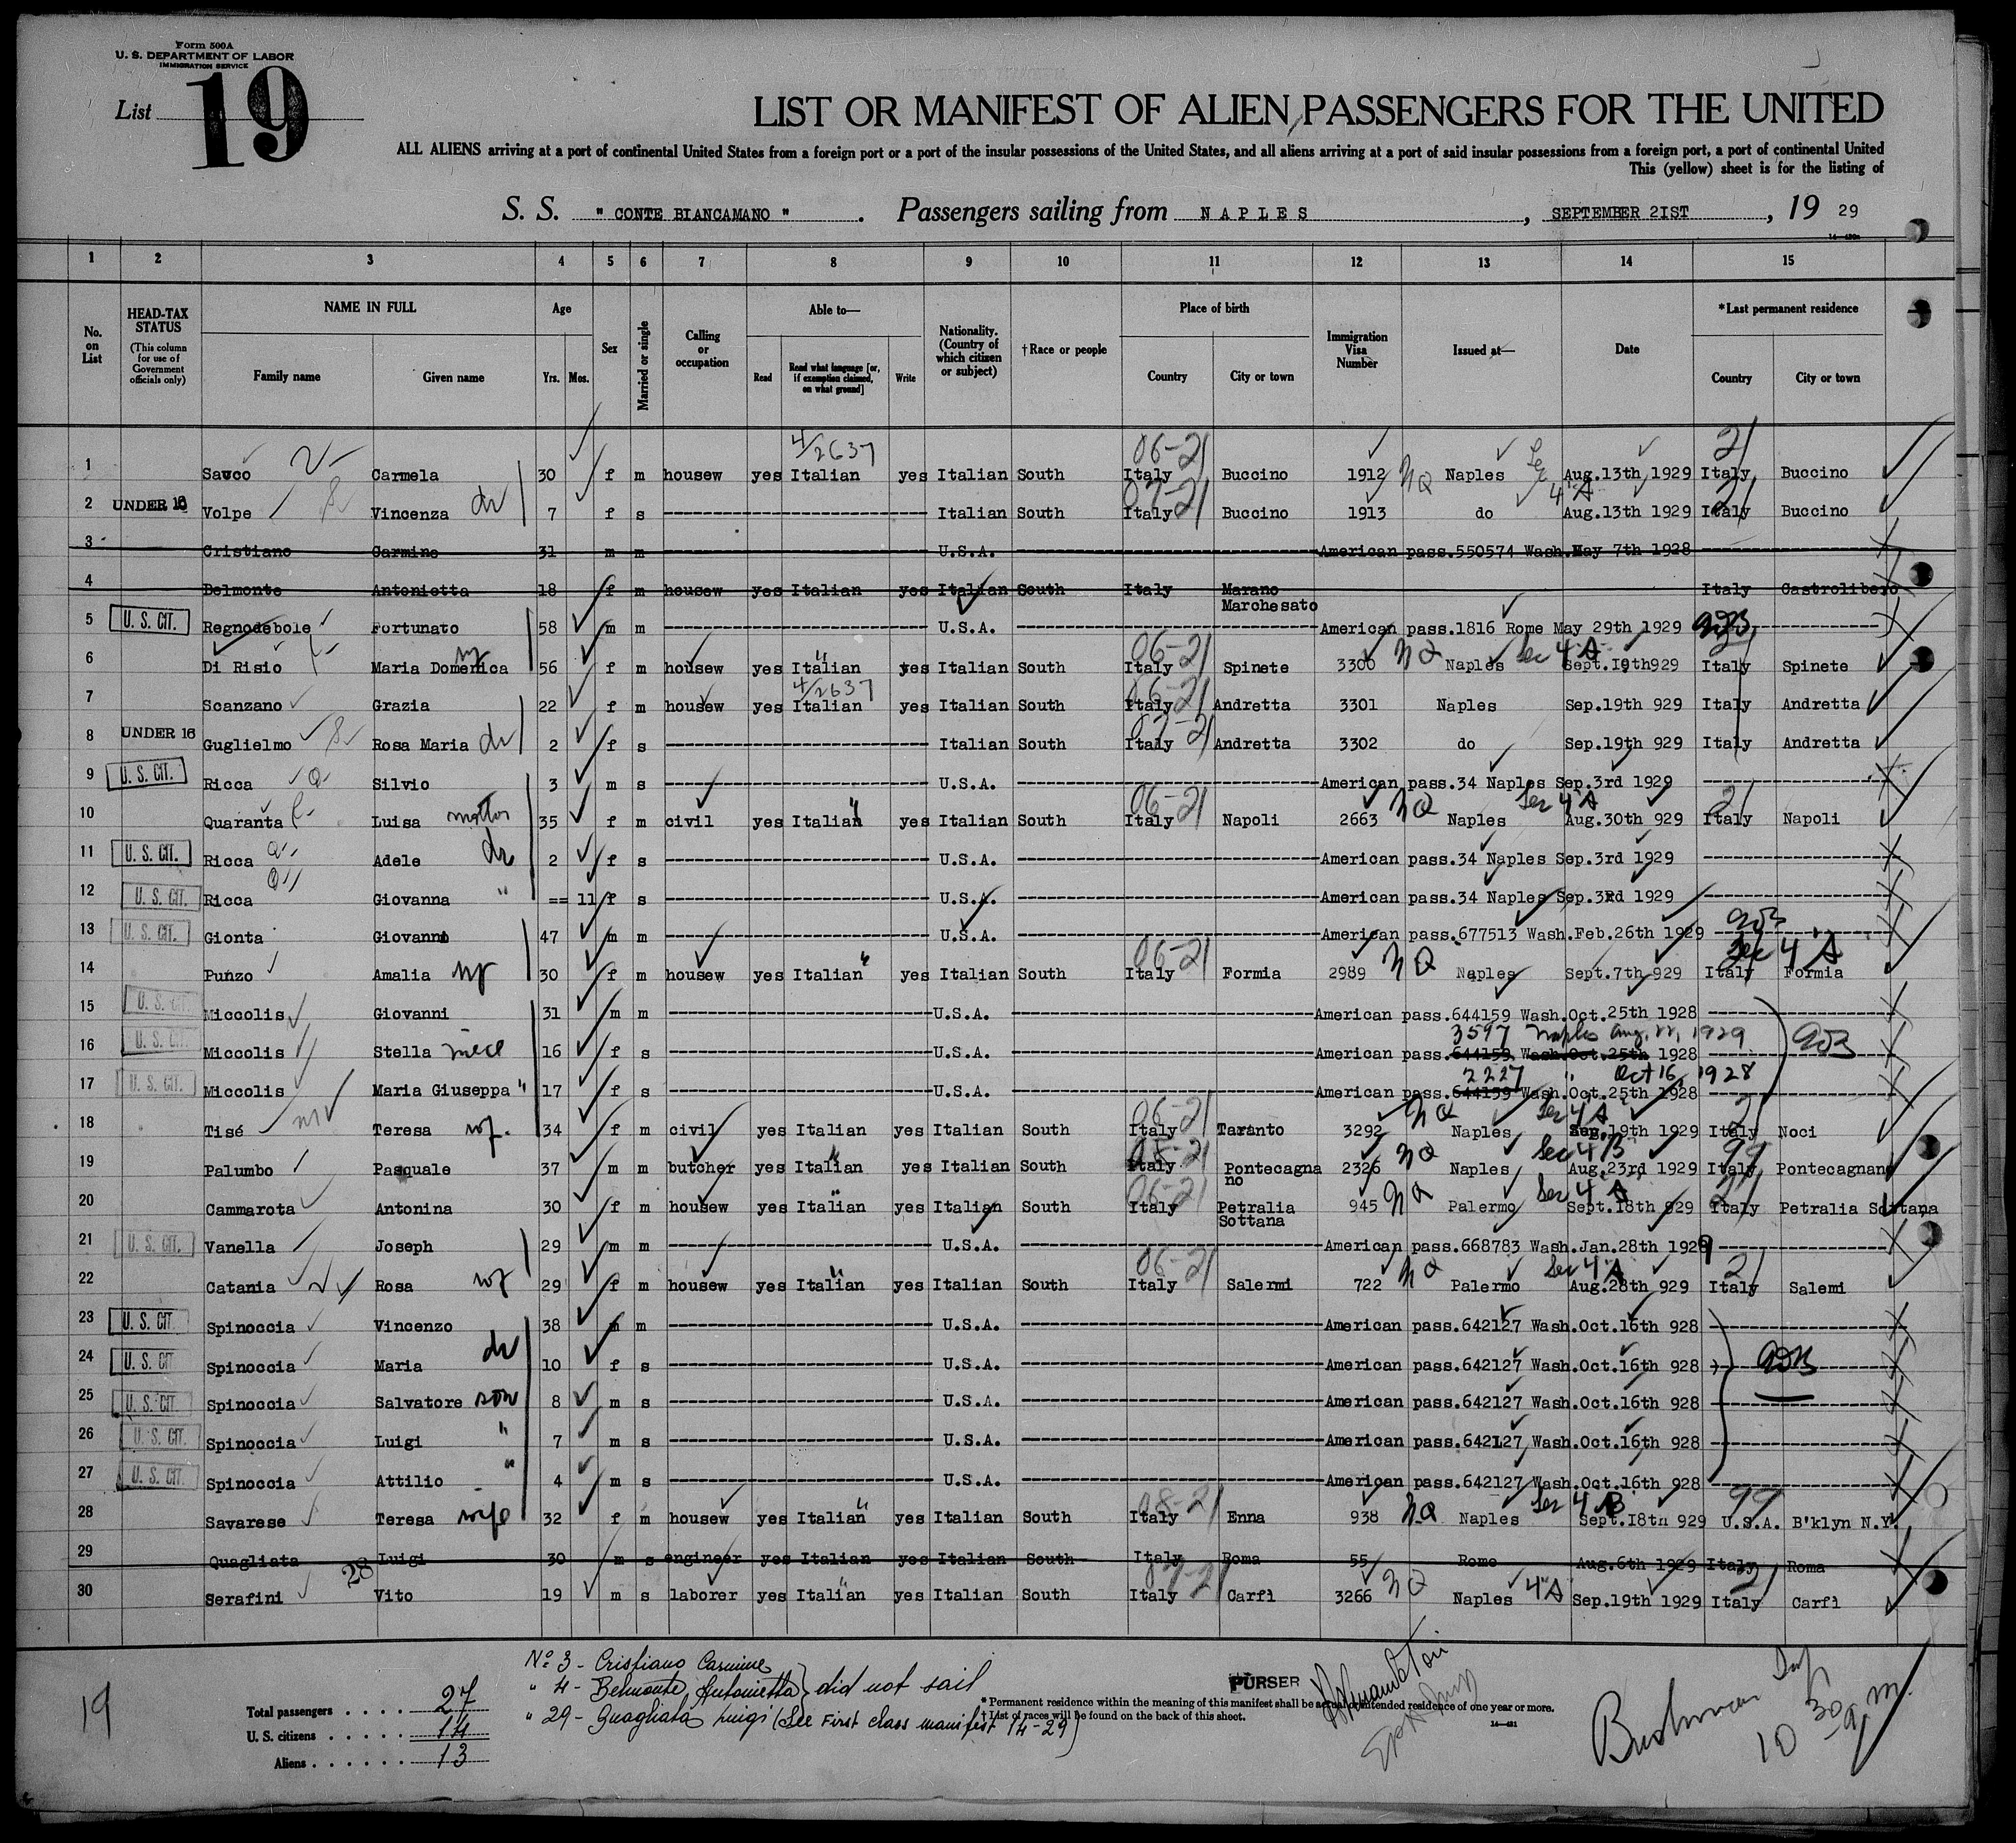 Form 500A
U. S. DEPARTMENT OF LABOR
IMMIGRATION SERVICE
List 19
LIST OR MANIFEST OF ALIEN PASSENGERS FOR THE UNITED
ALL ALIENS arriving at a port of continental United States from a foreign port or a port of the insular possessions of the United States, and all aliens arriving at a port of said insular possessions from a foreign port, a port of continental United
This (yellow) sheet is for the listing of
S. S. " CONTE BIANCAMANO " . Passengers sailing from NAPLES , SEPTEMBER 21ST , 19 29
1 2 3 4 5 6 7 8 9 10 11 12 13 14 15
No. on List
HEAD-TAX STATUS (This column for use of Government officials only)
NAME IN FULL Family name Given name
Age Yrs. Mos.
Sex
Married or single
Calling or occupation
Able to— Read Read what language [or, if exemption claimed, on what ground] Write
Nationality. (Country of which citizen or subject)
†Race or people
Place of birth Country City or town
Immigration Visa Number
Issued at—
Date
*Last permanent residence Country City or town
4/2637 06-21 21
1 Sauco Carmela 30 f m housew yes Italian yes Italian South Italy Buccino 1912 NQ Naples Aug.13th 1929 Italy Buccino
07-21 4 A 21
2 UNDER 16 Volpe Vincenza dr 7 f s Italian South Italy Buccino 1913 do Aug.13th 1929 Italy Buccino
3 Cristiano Carmine 31 m m U.S.A. American pass.550574 Wash.May 7th 1928
4 Belmonte Antonietta 18 f m housew yes Italian yes Italian South Italy Marano Marchesato Italy Castrolibero
5 U. S. CIT. Regnodebole Fortunato 58 m m U.S.A. American pass.1816 Rome May 29th 1929
06-21 Sec 4 A
6 Di Risio Maria Domenica wf 56 f m housew yes Italian yes Italian South Italy Spinete 3300 NQ Naples Sept.19th929 Italy Spinete
4/2637 06-21
7 Scanzano Grazia 22 f m housew yes Italian yes Italian South Italy Andretta 3301 Naples Sep.19th 929 Italy Andretta
07-21
8 UNDER 16 Guglielmo Rosa Maria dr 2 f s Italian South Italy Andretta 3302 do Sep.19th 929 Italy Andretta
9 U. S. CIT. Ricca Silvio 3 m s U.S.A. American pass.34 Naples Sep.3rd 1929
06-21 Sec 4 A 21
10 Quaranta Luisa mother 35 f m civil yes Italian yes Italian South Italy Napoli 2663 NQ Naples Aug.30th 929 Italy Napoli
11 U. S. CIT. Ricca Adele dr 2 f s U.S.A. American pass.34 Naples Sep.3rd 1929
12 U. S. CIT. Ricca Giovanna " == 11 f s U.S.A. American pass.34 Naples Sep.3rd 1929
13 U. S. CIT. Gionta Giovanni 47 m m U.S.A. American pass.677513 Wash.Feb.26th 1929
06-21 Sec 4 A
14 Punzo Amalia wf 30 f m housew yes Italian yes Italian South Italy Formia 2989 NQ Naples Sept.7th 929 Italy Formia
15 U. S. CIT. Miccolis Giovanni 31 m m U.S.A. American pass.644159 Wash.Oct.25th 1928
3597 Naples Aug. 22, 1929
16 U. S. CIT. Miccolis Stella niece 16 f s U.S.A. American pass.644159 Wash.Oct.25th 1928
2227 " Oct 16, 1928
17 U. S. CIT. Miccolis Maria Giuseppa " 17 f s U.S.A. American pass.644159 Wash.Oct.25th 1928
06-21 Sec 4 A 21
18 Tisé Teresa wf. 34 f m civil yes Italian yes Italian South Italy Taranto 3292 NQ Naples Sep.19th 1929 Italy Noci
08-21 Sec 4 B 99
19 Palumbo Pasquale 37 m m butcher yes Italian yes Italian South Italy Pontecagnano 2326 NQ Naples Aug.23rd 1929 Italy Pontecagnano
06-21 Sec 4 A 21
20 Cammarota Antonina 30 f m housew yes Italian yes Italian South Italy Petralia Sottana 945 NQ Palermo Sept.18th 929 Italy Petralia Sottana
21 U. S. CIT. Vanella Joseph 29 m m U.S.A. American pass.668783 Wash.Jan.28th 1929
06-21 Sec 4 A 21
22 Catania Rosa wf 29 f m housew yes Italian yes Italian South Italy Salermi 722 NQ Palermo Aug.28th 929 Italy Salemi
23 U. S. CIT. Spinoccia Vincenzo 38 m m U.S.A. American pass.642127 Wash.Oct.16th 928
24 U. S. CIT. Spinoccia Maria dr 10 f s U.S.A. American pass.642127 Wash.Oct.16th 928
25 U. S. CIT. Spinoccia Salvatore son 8 m s U.S.A. American pass.642127 Wash.Oct.16th 928
26 U. S. CIT. Spinoccia Luigi " 7 m s U.S.A. American pass.642127 Wash.Oct.16th 928
27 U. S. CIT. Spinoccia Attilio " 4 m s U.S.A. American pass.642127 Wash.Oct.16th 928
08-21 Sec 4 B 99
28 Savarese Teresa wife 32 f m housew yes Italian yes Italian South Italy Enna 938 NQ Naples Sept.18th 929 U.S.A. B'klyn N.Y.
29 Quagliata Luigi 30 m s engineer yes Italian yes Italian South Italy Roma 55 Rome Aug.6th 1929 Italy Roma
28 07-21 21
30 Serafini Vito 19 m s laborer yes Italian yes Italian South Italy Carfì 3266 NQ Naples 4 A Sep.19th 1929 Italy Carfì
19
Total passengers . . . . 27
U. S. citizens . . . . . 14
Aliens . . . . . . 13
No. 3 - Cristiano Carmine
" 4 - Belmonte Antonietta } did not sail
" 29 - Quagliata Luigi (See First class manifest 14-29)
PURSER
* Permanent residence within the meaning of this manifest shall be actual or intended residence of one year or more.
† List of races will be found on the back of this sheet.
10 30 a.m.